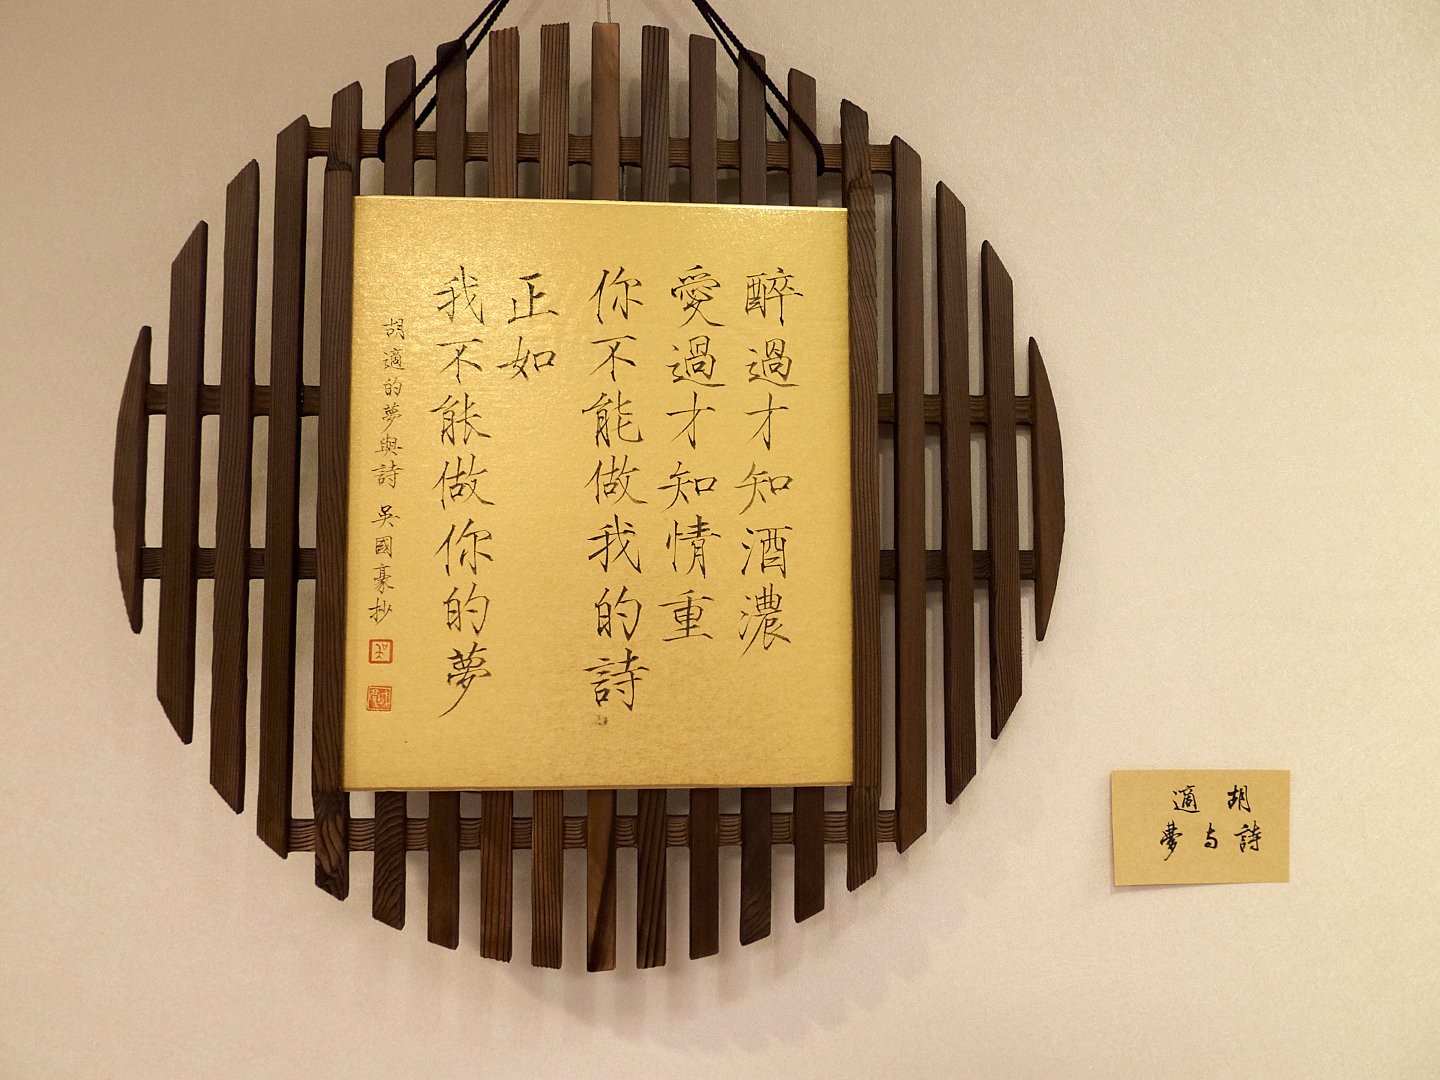 醉過才知酒濃
愛過才知情重
你不能做我的詩
正如
我不能做你的夢
胡適的夢與詩 吳國豪抄
胡適
詩与夢